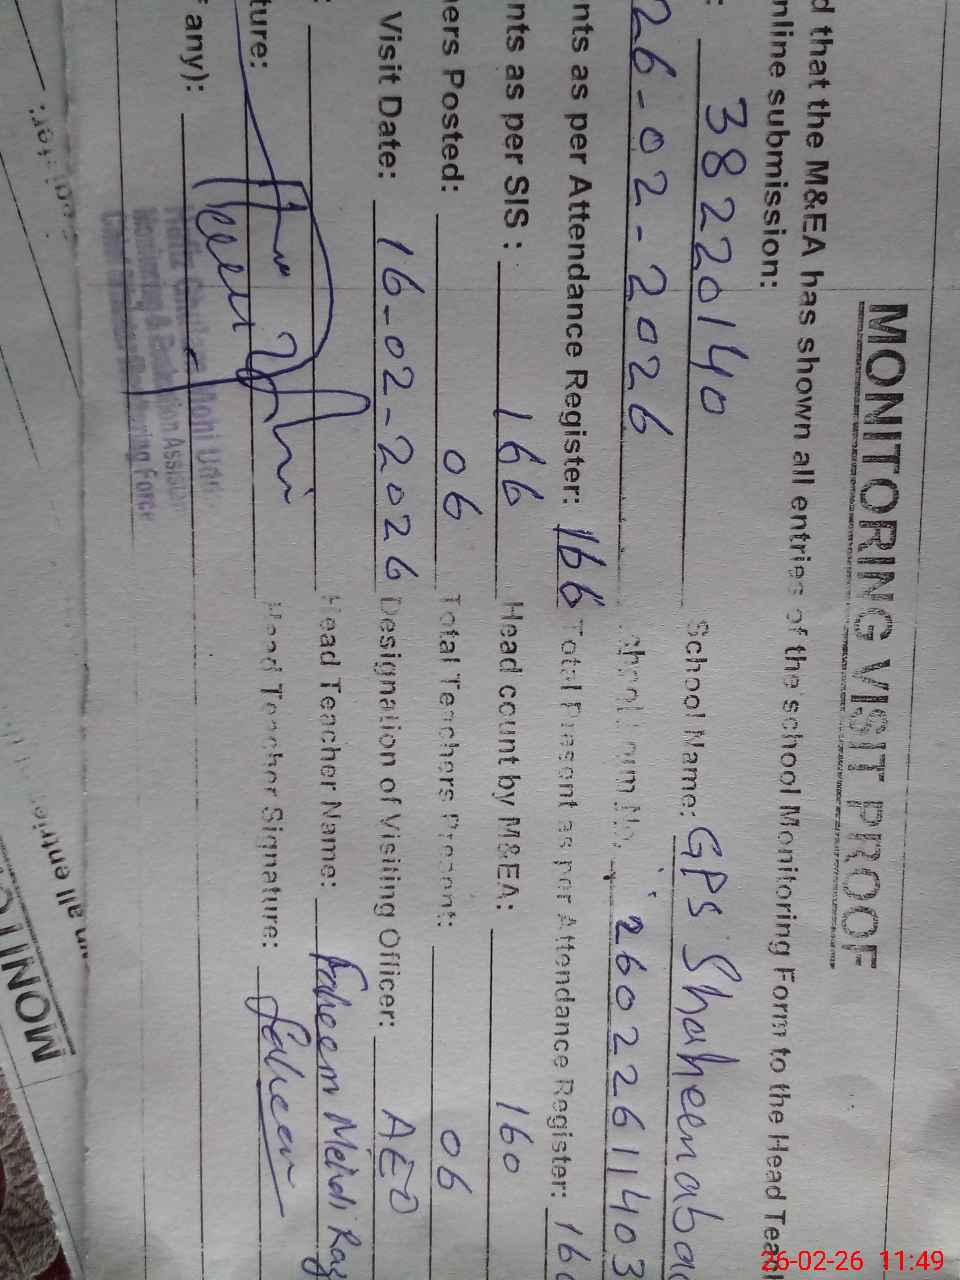 MONITORING VISIT PROOF
d that the M&EA has shown all entries of the school Monitoring Form to the Head Teac
nline submission:
: 38220140 School Name: GPS Shaheenaba
26-02-2026 26022611403
nts as per Attendance Register: 166 Total Present as per Attendance Register: 16
nts as per SIS : 166 Head count by M&EA: 160
ers Posted: 06 Total Teachers Present: 06
Visit Date: 16-02-2026 Designation of Visiting Officer: AEO
: Head Teacher Name: Faheem Mehdi
ture: Head Teacher Signature: Faheem
any):
Monitoring & Evaluation Assistant
Force
MONITO
all entrie
26-02-26 11:49